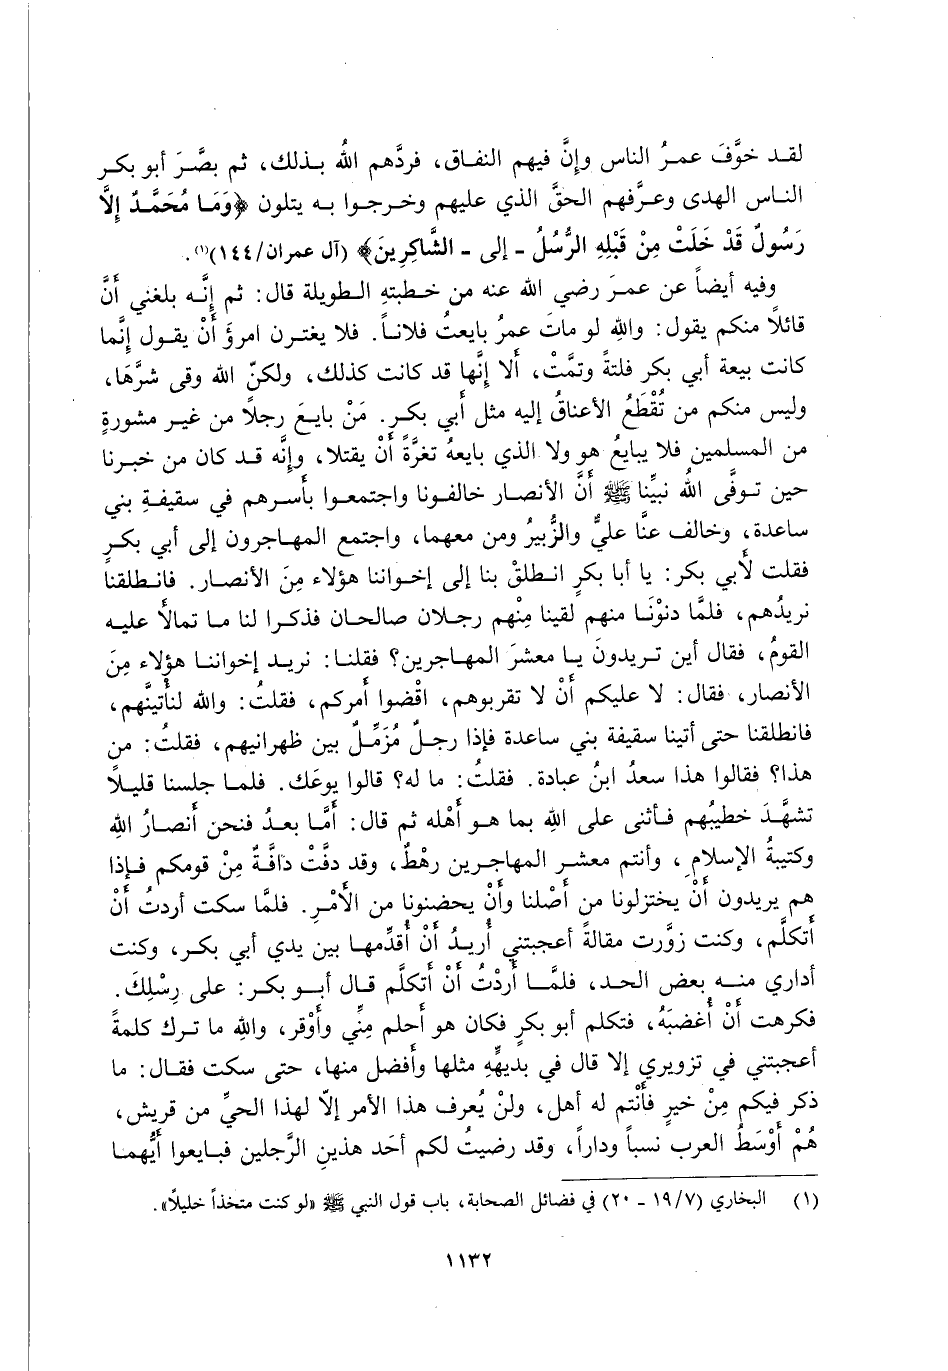 لقد خوَّفَ عمرُ الناس وإنَّ فيهم النفاق، فردَّهم اللهُ بذلك، ثم بصَّرَ أبو بكر
الناس الهدى وعرَّفهم الحقَّ الذي عليهم وخرجوا به يتلون ﴿وَمَا مُحَمَّدٌ إِلَّا
رَسُولٌ قَدْ خَلَتْ مِنْ قَبْلِهِ الرُّسُلُ - إلى - الشَّاكِرِينَ﴾ (آل عمران/١٤٤)(١).
وفيه أيضاً عن عمرَ رضي الله عنه من خطبتهِ الطويلة قال: ثم إنَّه بلغني أَنَّ
قائلاً منكم يقول: والله لو ماتَ عمرُ بايعتُ فلاناً. فلا يغترن امرؤَ أَنْ يقول إنَّما
كانت بيعة أبي بكر فلتةً وتمَّتْ، أَلا إنَّها قد كانت كذلك، ولكنّ الله وقى شرَّها،
وليس منكم من تُقْطَعُ الأعناقُ إليه مثل أَبي بكرٍ. مَنْ بايعَ رجلاً من غير مشورةٍ
من المسلمين فلا يبايعُ هو ولا الذي بايعهُ تغرَّةً أَنْ يقتلا، وإنَّه قد كان من خبرنا
حين توفَّى اللهُ نبيَّنا ﷺ أَنَّ الأنصار خالفونا واجتمعوا بأسرهم في سقيفةِ بني
ساعدة، وخالف عنَّا عليٌّ والزُّبيرُ ومن معهما، واجتمع المهاجرون إلى أبي بكرٍ
فقلت لأَبي بكر: يا أبا بكرٍ انطلقْ بنا إلى إخواننا هؤلاء مِنَ الأنصار. فانطلقنا
نريدُهم، فلمَّا دنوْنَا منهم لقينا مِنْهم رجلان صالحان فذكرا لنا ما تمالأَ عليه
القومُ، فقال أين تريدونَ يا معشرَ المهاجرين؟ فقلنا: نريد إخواننا هؤلاء مِنَ
الأنصار، فقال: لا عليكم أَنْ لا تقربوهم، اقْضوا أَمركم، فقلتُ: والله لنأتينَّهم،
فانطلقنا حتى أتينا سقيفة بني ساعدة فإذا رجلٌ مُزَمِّلٌ بين ظهرانيهم، فقلتُ: من
هذا؟ فقالوا هذا سعدُ ابنُ عبادة. فقلتُ: ما له؟ قالوا يوعَك. فلما جلسنا قليلاً
تشهَّدَ خطيبُهم فأثنى على اللهِ بما هو أَهْله ثم قال: أَمَّا بعدُ فنحن أَنصارُ اللهِ
وكتيبةُ الإسلامِ، وأنتم معشر المهاجرين رهْطٌ، وقد دفَّتْ دَافَّةٌ مِنْ قومكم فإذا
هم يريدون أَنْ يختزلونا من أَصْلنا وأَنْ يحضنونا من الأَمْرِ. فلمَّا سكت أردتُ أَنْ
أَتكلَّم، وكنت زوَّرت مقالةً أعجبتني أُريدُ أَنْ أُقدِّمها بين يدي أبي بكر، وكنت
أداري منه بعض الحد، فلمَّا أَردْتُ أَنْ أَتكلَّم قال أبو بكر: على رِسْلِكَ.
فكرهت أَنْ أُغضبَهُ، فتكلم أبو بكرٍ فكان هو أَحلم مِنِّي وأَوْقر، والله ما ترك كلمةً
أعجبتني في تزويري إلا قال في بديهِّهِ مثلها وأَفضل منها، حتى سكت فقال: ما
ذكر فيكم مِنْ خيرٍ فأَنْتم له أهل، ولنْ يُعرف هذا الأمر إلاّ لهذا الحيِّ من قريش،
هُمْ أَوْسَطُ العرب نسباً وداراً، وقد رضيتُ لكم أحَد هذينِ الرَّجلين فبايعوا أَيُّهما
(١) البخاري (١٩/٧ - ٢٠) في فضائل الصحابة، باب قول النبي ﷺ «لو كنت متخذاً خليلاً».
١١٣٢